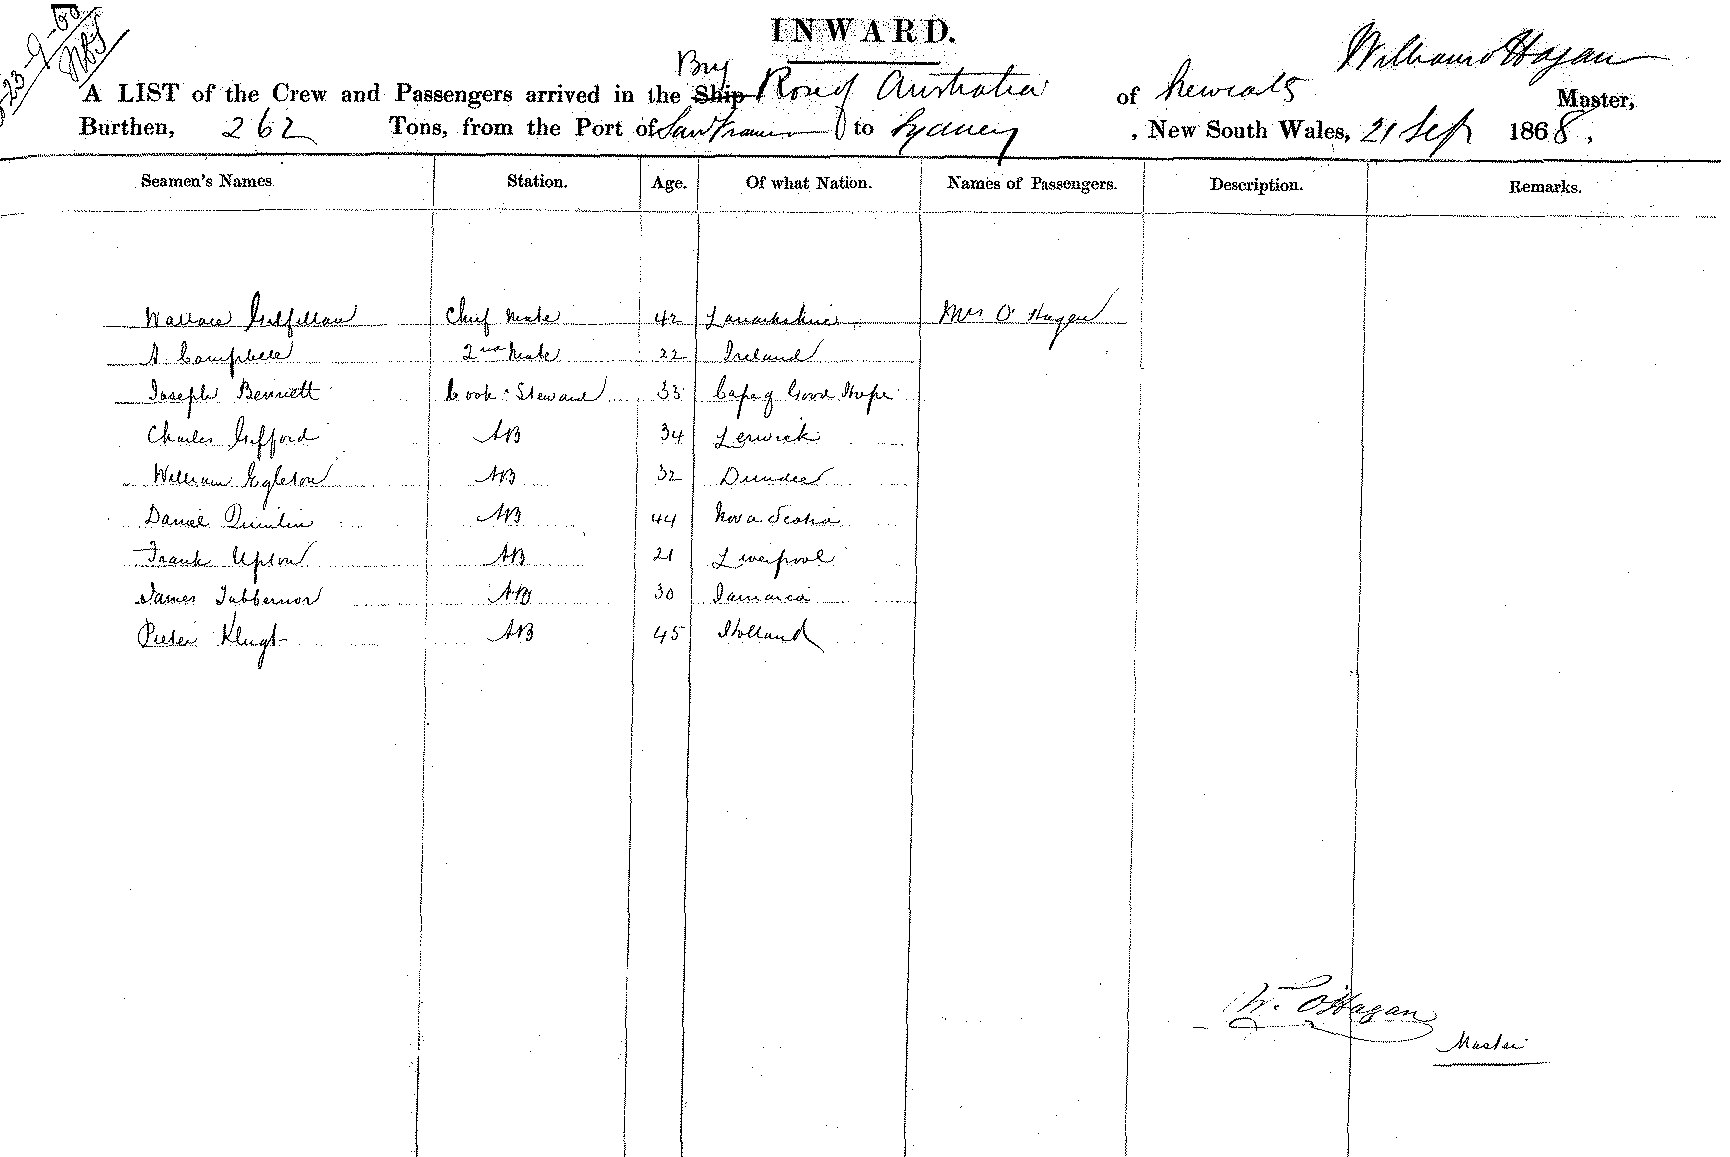 23-9-68
INWARD.
Brig
William O'Hagan
A LIST of the Crew and Passengers arrived in the Ship Rose of Australia of Newcastle Master,
Burthen, 262 Tons, from the Port of San Francisco to Sydney, New South Wales, 21 Sep 1868.
Seamen's Names Station. Age. Of what Nation. Names of Passengers. Description. Remarks.
Wallace Gilfillan Chief Mate 42 Lanarkshire Mrs O'Hagan
A Campbell 2nd Mate 22 Ireland
Joseph Bennett Cook & Steward 33 Cape of Good Hope
Charles Gifford AB 34 Lerwick
William Egleton AB 32 Dundee
Daniel Quinlin AB 44 Nova Scotia
Frank Upton AB 21 Liverpool
James Tabbernor AB 30 Jamaica
Pieter Klugt AB 45 Holland
W. O'Hagan
Master